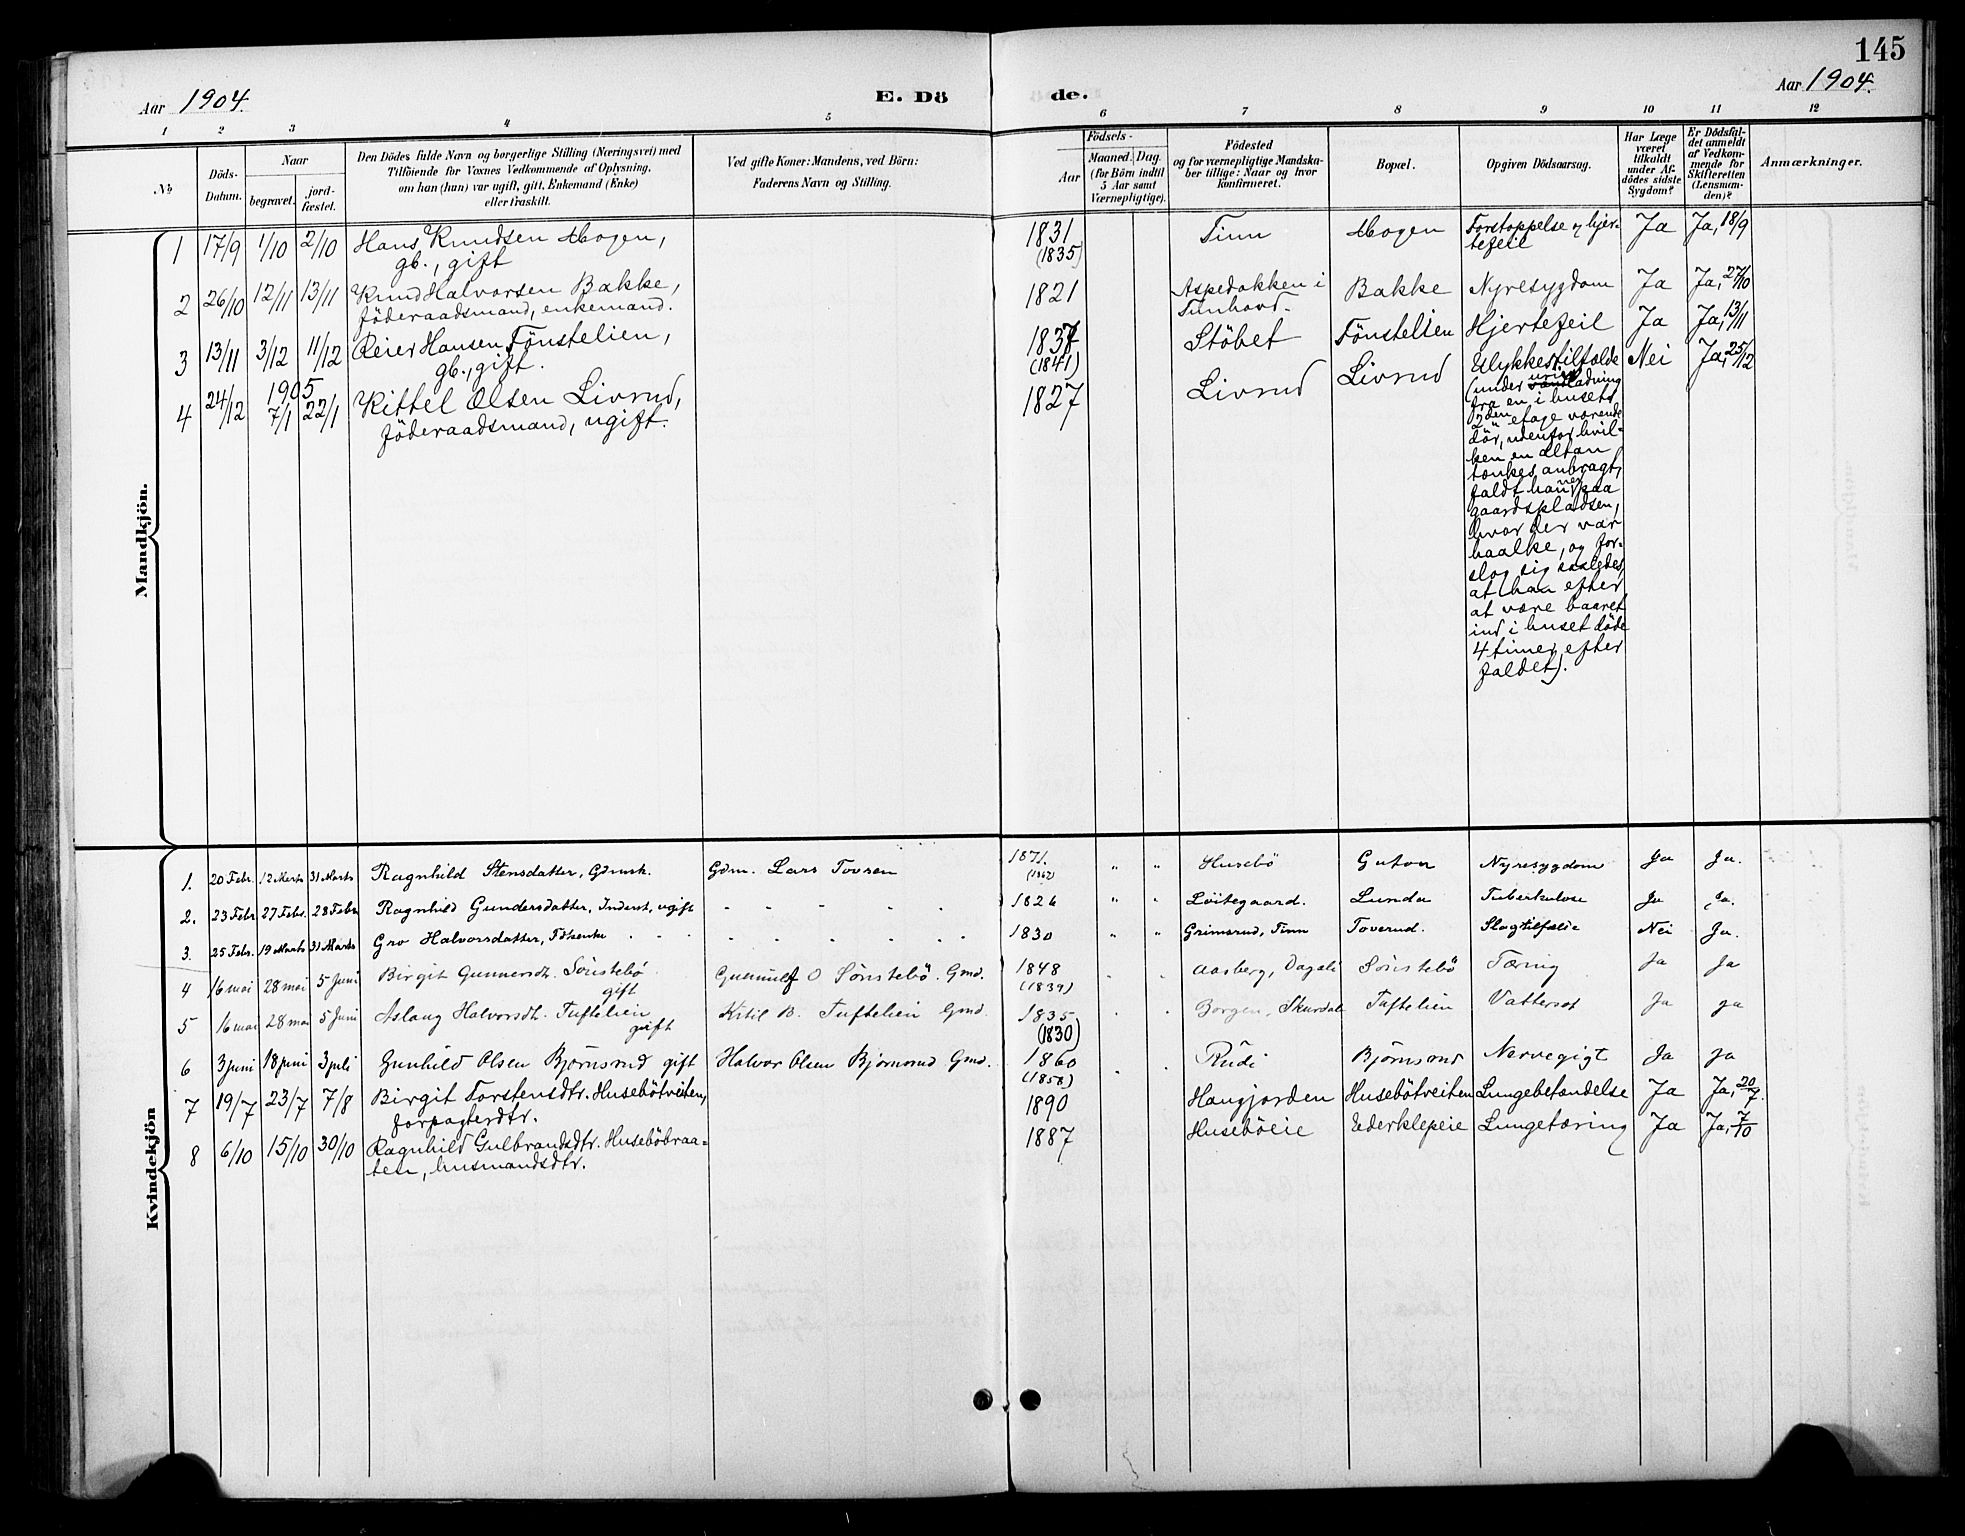 145
Aar 1904.
E. Dö
de.
Aar 1904.
1 2 3 4 5 6 7 8 9 10 11 12
No
Döds-Datum.
Naar
begravet.
jord-fæstet.
Den Dödes fulde Navn og borgerlige Stilling (Næringsvei) med
Tilföiende for Voxnes Vedkommende af Oplysning,
om han (hun) var ugift, gift, Enkemand (Enke)
eller fraskilt.
Ved gifte Koner: Mandens, ved Börn:
Faderens Navn og Stilling.
Födsels-
Aar
Maaned. Dag.
(for Börn indtil
5 Aar samt
Værnepligtige).
Födested
og for værnepligtige Mandska-
ber tillige: Naar og hvor
konfirmeret.
Bopæl.
Opgiven Dödsaarsag.
Har Læge
været
tilkaldt
under Af-
dödes sidste
Sygdom?
Er Dödsfal-
det anmeldt
af Vedkom-
mende for
Skifteretten
(Lensman-
den)?
Anmærkninger.
Mandkjön.
1 17/9 1/10 2/10 Hans Knudsen Mogen, 1831 Tinn Mogen Forstoppelse og hjer- Ja Ja, 18/9
gb., gift (1835) tefeil
2 26/10 12/11 13/11 Knud Halvorsen Bakke, 1821 Aspedokken i Bakke Nyresygdom Ja Ja, 27/10
föderaadsmand, enkemand. Tunhovd.
3 13/11 3/12 11/12 Reier Hansen Fönstelien, 1837 Stöbet Fönstelien Hjertefeil Ja Ja, 13/11
gb., gift. (1841)
4 24/12 1905 7/1 22/1 Kittel Olsen Livrud, 1827 Livrud Livrud Ulykkestilfælde Nei Ja, 25/12
föderaadsmand, ugift.
(under urinladning
fra en i husets
2den etage værende
dör, udenfor hvil-
ken en altan
tænkes anbragt,
faldt han ned paa
gaardspladsen,
hvor der var
haalke, og for-
slog sig saaledes,
at han efter
at være baaret
ind i huset döde
4 timer efter
faldet).
Kvindekjön
1. 20 Febr. 12 Marts 31 Marts Ragnhild Stensdatter, Gdmsk. Gdm. Lars Tovsen 1871. (1862) " " Husebö Guton Nyresygdom Ja Ja.
2. 23 Febr 27 Febr. 28 Febr Ragnhild Gundersdatter, Inderst, ugift - - - - - 1826 " " Löitegaard. Lunda Tuberkulose Ja Ja.
3. 25 Febr. 19 Marts 31 Marts Gro Halvorsdatter, Fdkenke - - - - - - 1830 " " Grimsrud, Tinn Toverud. Slagtilfælde Nei Ja.
4 16 mai 28 mai 5 Juni Birgit Gunnersdt. Sönstebö Gunnulf O Sönstebö. Gmd. 1848 Aasberg, Dagali Sönstebö Tæring Ja Ja
gift (1839)
5 16 mai 28 mai 5 Juni Aslaug Halvorsdt. Tuftelien Kitil B. Tuftelien Gmd. 1835 Borgen, Skurdal Tuftelien Vattersot Ja ja
gift (1830)
6 3 juni 18 juni 3 juli Gunhild Olsen Björnsrud gift Halvor Olsen Björnsrud Gmd. 1860 Rudi Björnsrud Nervegigt Ja ja
(1858)
7 19/7 23/7 7/8 Birgit Torstensdtr. Husebötveiten, 1890 Haugjorden Husebötveiten Lungebetændelse Ja Ja, 20/7.
forpagterdtr.
8 6/10 15/10 30/10 Ragnhild Gulbrandsdtr. Huseböbraa- 1887 Huseböeie Ederklepeie Lungetæring Ja Ja, 7/10
ten, husmandsdtr.